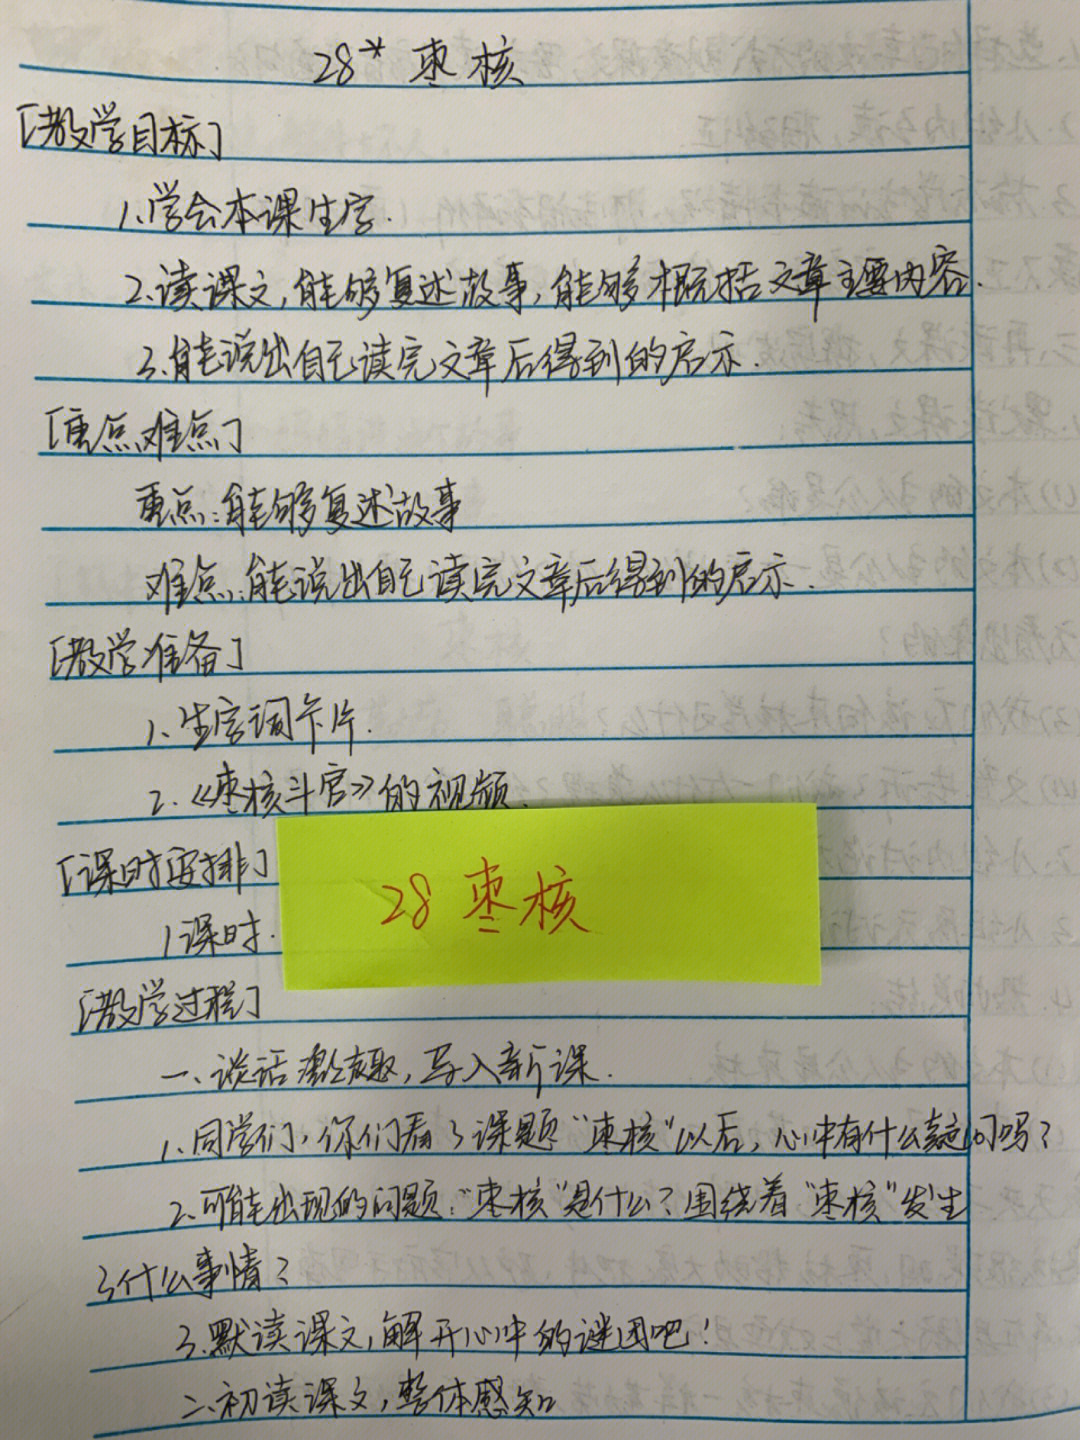 28* 枣核
[教学目标]
1.学会本课生字.
2.读课文,能够复述故事,能够概括文章主要内容.
3.能说出自己读完文章后得到的启示.
[重点难点]
重点:能够复述故事
难点:能说出自己读完文章后得到的启示.
[教学准备]
1、生字词卡片.
2.《枣核斗官》的视频.
[课时安排]
28 枣核
1课时.
[教学过程]
一、谈话激趣,导入新课.
1.同学们,你们看了课题“枣核”以后,心中有什么疑问吗?
2.可能出现的问题:“枣核”是什么?围绕着“枣核”发生
了什么事情?
3.默读课文,解开心中的谜团吧!
二、初读课文,整体感知